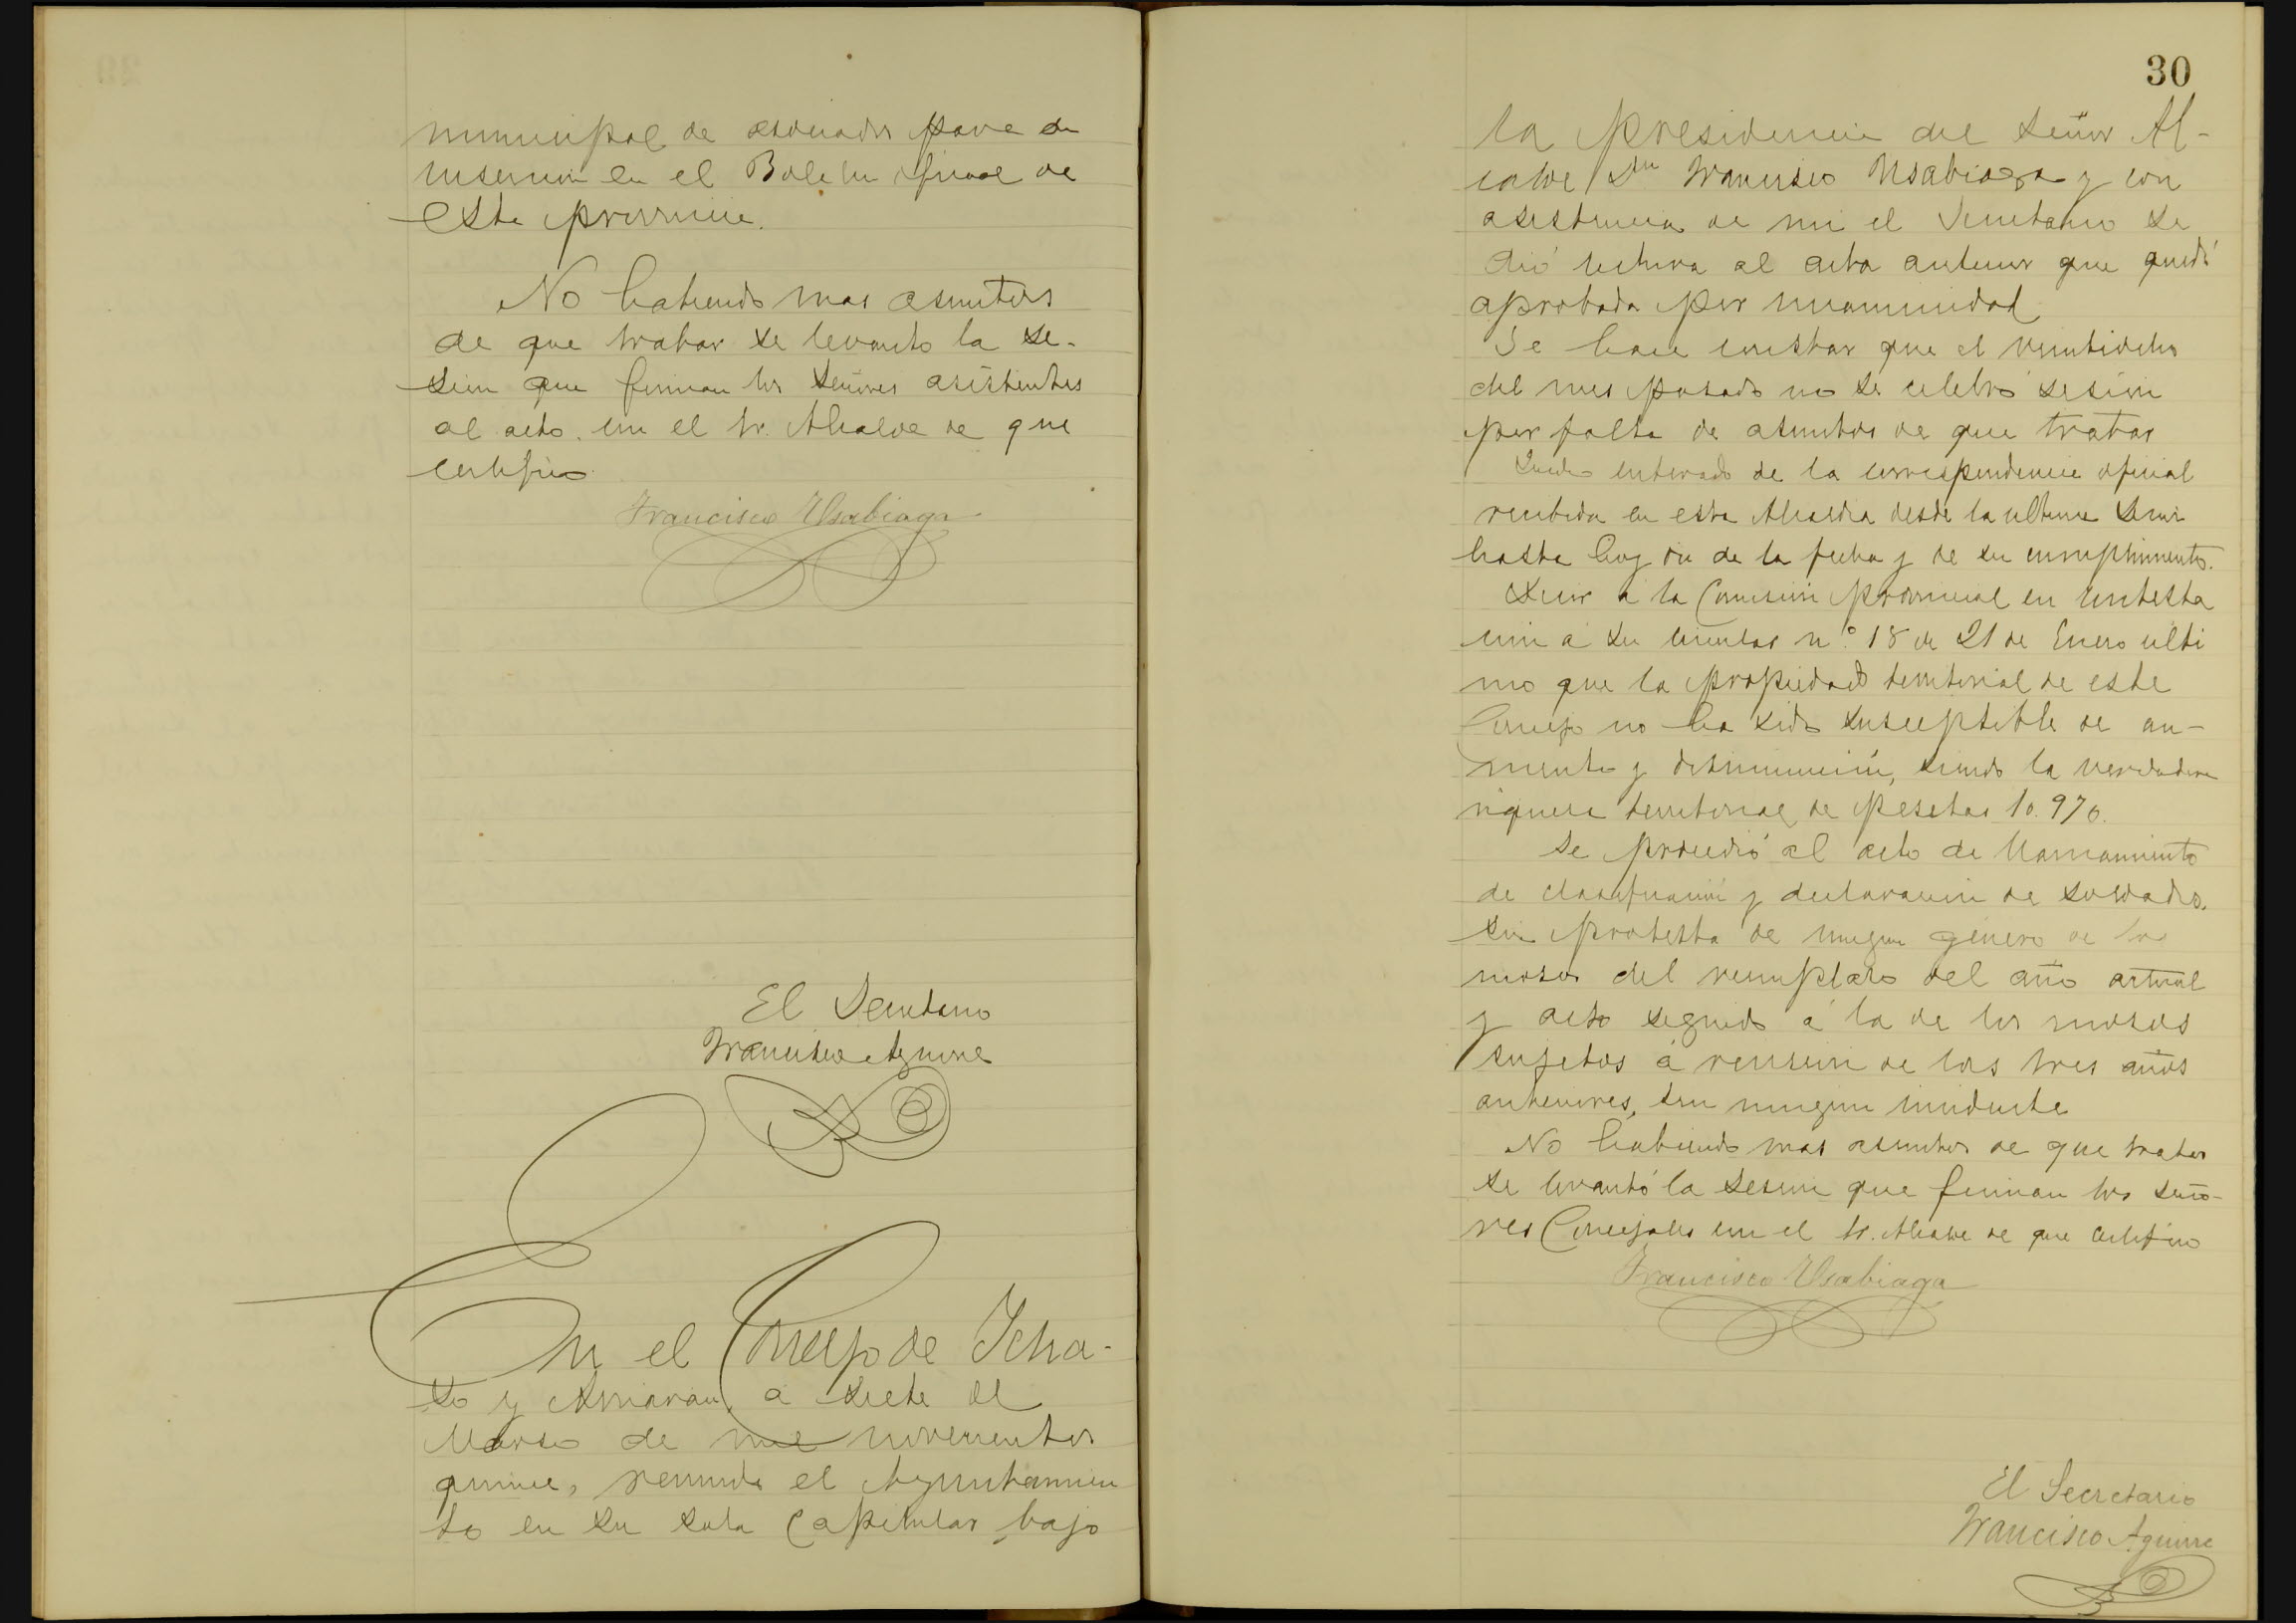 municipal de asociados para su
insercion en el Boletin oficial de
esta provincia.
No habiendo mas asuntos
de que tratar se levanto la se-
sion que firman los Señores asistentes
al acto con el Sr. Alcalde de que
certifico
Francisco Usabiaga
El Secretario
Francisco Aguirre
En el Concejo de Icha-
so y Arriaran, a siete de
Marso de mil novecientos
quince, reunido el Ayuntamien
to en su sala Capitular, bajo
30
la presidencia del Señor Al-
calde Dn Francisco Usabiaga y con
asistencia de mi el Secretario se
dió lectura al acta anterior que quedó
aprobada por unanimidad
Se hace constar que el veintiocho
del mes pasado no se celebró sesión
por falta de asuntos de que tratar
Quedó enterado de la correspondencia oficial
recibida en esta Alcaldia desde la ultima sesion
hasta hoy dia de la fecha y de su cumplimiento.
Decir a la Comision provincial en contesta
cion á su circular n.º 18 de 21 de Enero ulti
mo que la propiedad territorial de este
Concejo no ha sido susceptible de au-
mento y disminución, siendo la verdadera
riquesa territorial de pesetas 10.970.
Se procedió al acto de llamamiento
de clasificación y declaracion de soldados.
sin protesta de ningun género de los
mosos del reemplaso del año actual
y acto seguido á la de los mosos
sujetos á revision de los tres años
anteriores, sin ningun incidente
No habiendo mas asuntos de que tratar
se levantó la sesion que firman los Seño-
res Concejales con el Sr. Alcalde de que certifico
Francisco Usabiaga
El Secretario
Francisco Aguirre